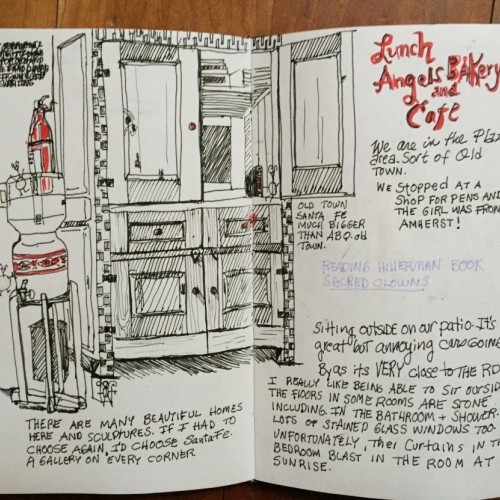 Lunch
Angels BAKery
and
Cafe
We are in the Plaz
area. Sort of Old
TOWN.
WE STOPPED AT A
SHOP FOR PENS AND
THE GIRL WAS FROM
AMHERST!
OLD TOWN
SANTA FE
MUCH BIGGER
THAN ABQ. old
TOWN.
READING HILLERMAN BOOK
SACRED CLOWNS
Sitting outside on our patio. It's
great but annoying cars going
By as its VERY close to THE RD.
I REALLY LIKE BEING ABLE TO SIT OUTSID
THE FLOORS IN SOME ROOMS ARE STONE
INCLUDING IN THE BATHROOM + SHOWER.
LOTS OF STAINED GLASS WINDOWS TOO.
UNFORTUNATELY, THE CURTAINS IN TH
BEDROOM BLAST IN THE ROOM AT
SUNRISE.
THERE ARE MANY BEAUTIFUL HOMES
HERE AND SCULPTURES. IF I HAD TO
CHOOSE AGAIN, I'D CHOOSE SANTA FE.
A GALLERY ON EVERY CORNER